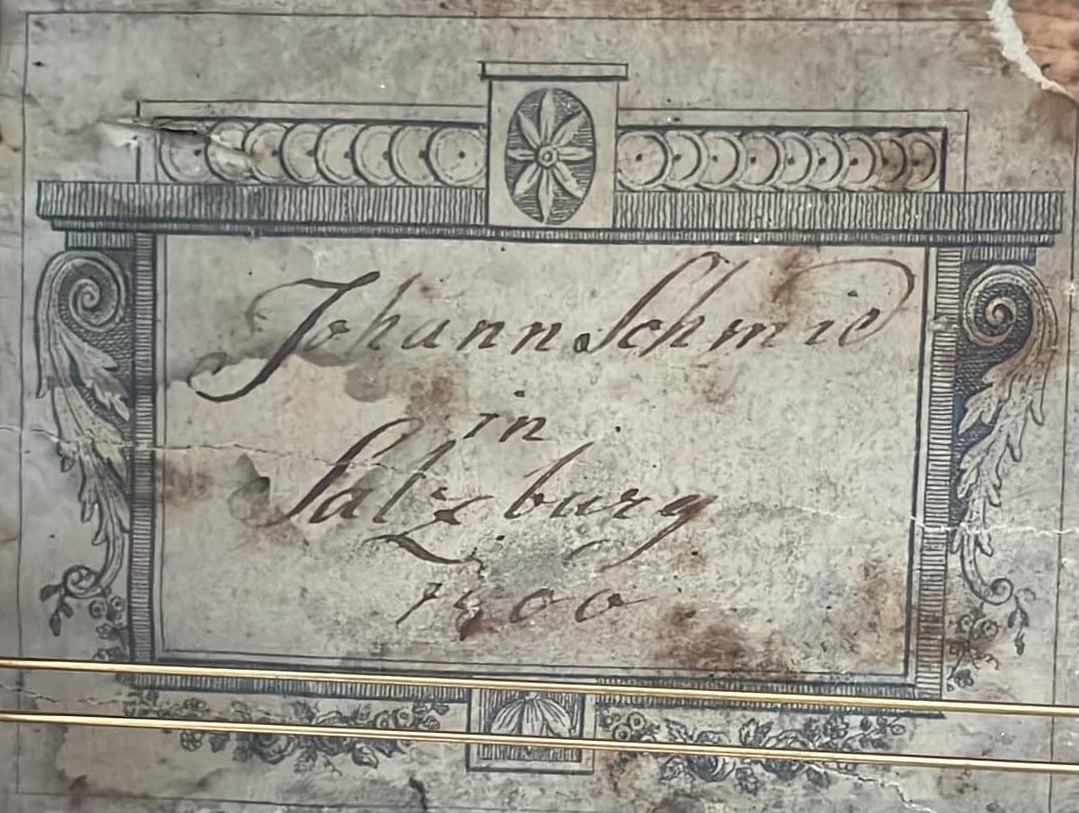 Johann Schmid
in
Salzburg
1800